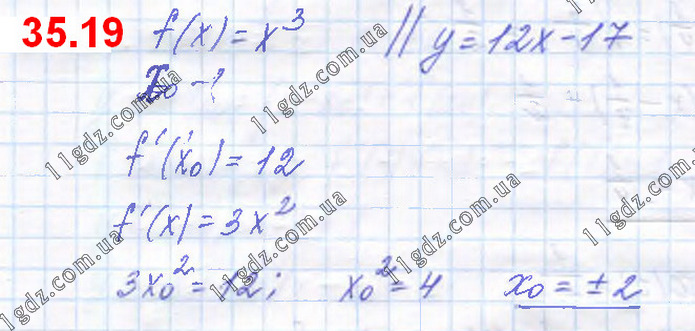 35.19 f(x) = x³ // y = 12x - 17
x₀ - ?
f'(x₀) = 12
f'(x) = 3x²
3x₀² = 12; x₀² = 4 x₀ = ± 2
11gdz.com.ua
11gdz.com.ua
11gdz.com.ua
11gdz.com.ua
11gdz.com.ua
11gdz.com.ua
11gdz.com.ua